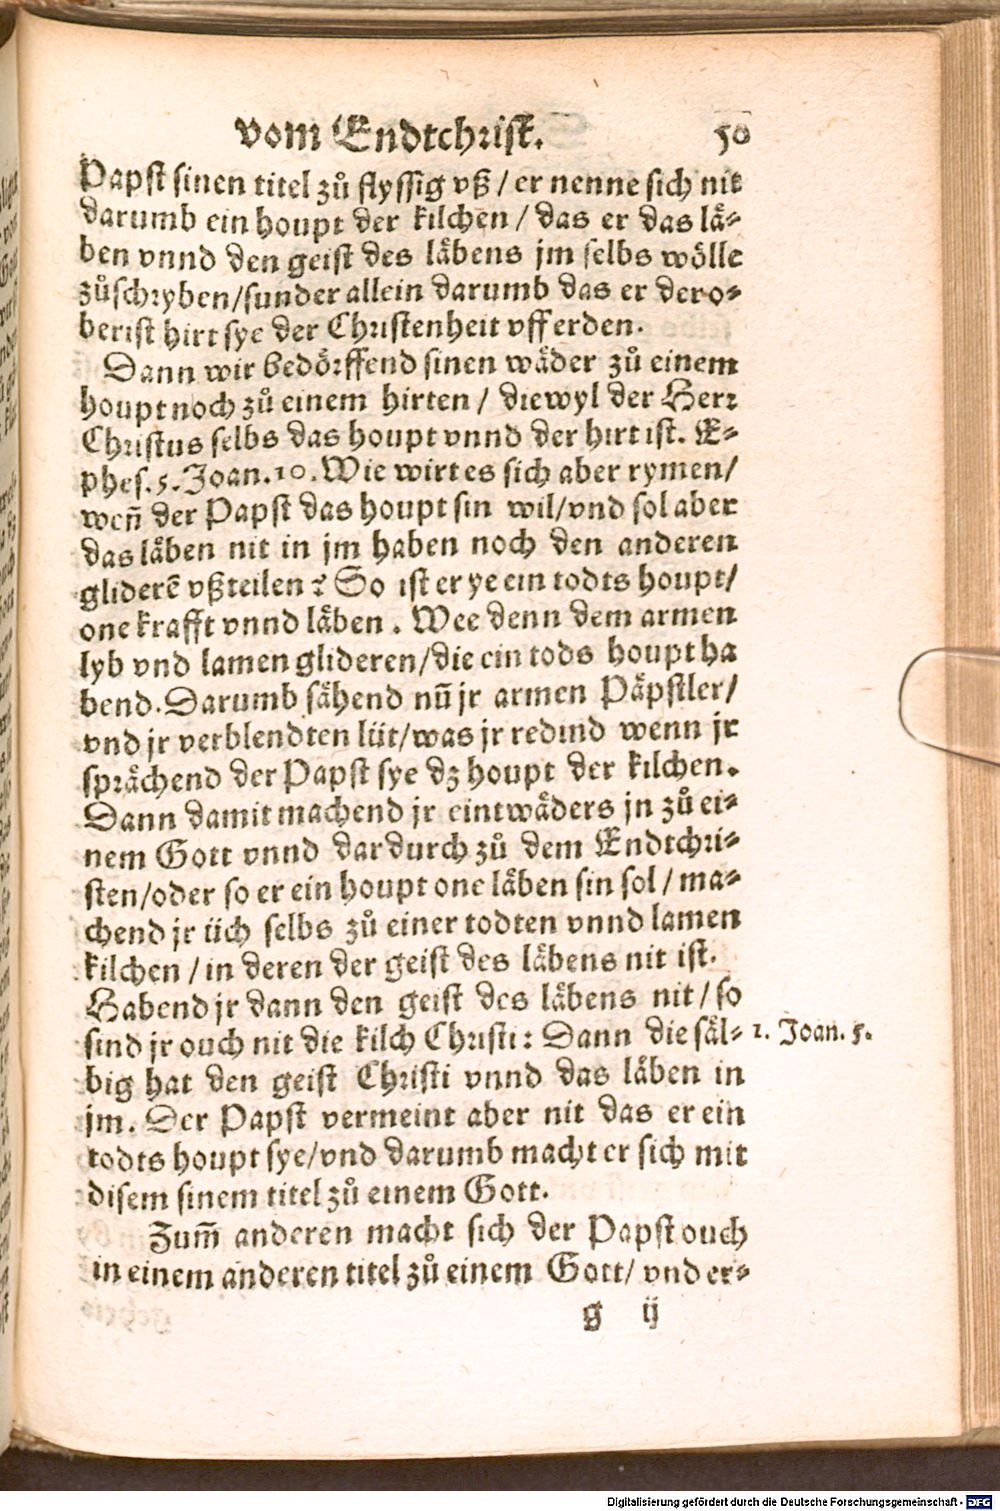 vom Endtchrist. 50
Papst sinen titel zů flyssig vß / er nenne sich nit
darumb ein houpt der kilchen / das er das lä⸗
ben vnnd den geist des läbens jm selbs wölle
zůschryben/sunder allein darumb das er der o⸗
berist hirt sye der Christenheit vff erden.
Dann wir bedörffend sinen wäder zů einem
houpt noch zů einem hirten / diewyl der Herr
Christus selbs das houpt vnnd der hirt ist. E⸗
phes. 5. Joan. 10. Wie wirt es sich aber rymen/
weñ der Papst das houpt sin wil/vnd sol aber
das läben nit in jm haben noch den anderen
gliderē vßteilen? So ist er ye ein todts houpt/
one krafft vnnd läben. Wee denn dem armen
lyb vnd lamen glideren/die ein tods houpt ha
bend. Darumb sähend nũ jr armen Päpstler/
vnd jr verblendten lüt/was jr redind wenn jr
sprächend der Papst sye dz houpt der kilchen.
Dann damit machend jr eintwäders jn zů ei⸗
nem Gott vnnd dardurch zů dem Endtchri⸗
sten/oder so er ein houpt one läben sin sol / ma⸗
chend jr üch selbs zů einer todten vnnd lamen
kilchen / in deren der geist des läbens nit ist.
Habend jr dann den geist des läbens nit / so
sind jr ouch nit die kilch Christi: Dann die säl⸗ 1. Joan. 5.
big hat den geist Christi vnnd das läben in
jm. Der Papst vermeint aber nit das er ein
todts houpt sye/vnd darumb macht er sich mit
disem sinem titel zů einem Gott.
Zum̃ anderen macht sich der Papst ouch
in einem anderen titel zů einem Gott/ vnd er⸗
g ij
Digitalisierung gefördert durch die Deutsche Forschungsgemeinschaft - DFG